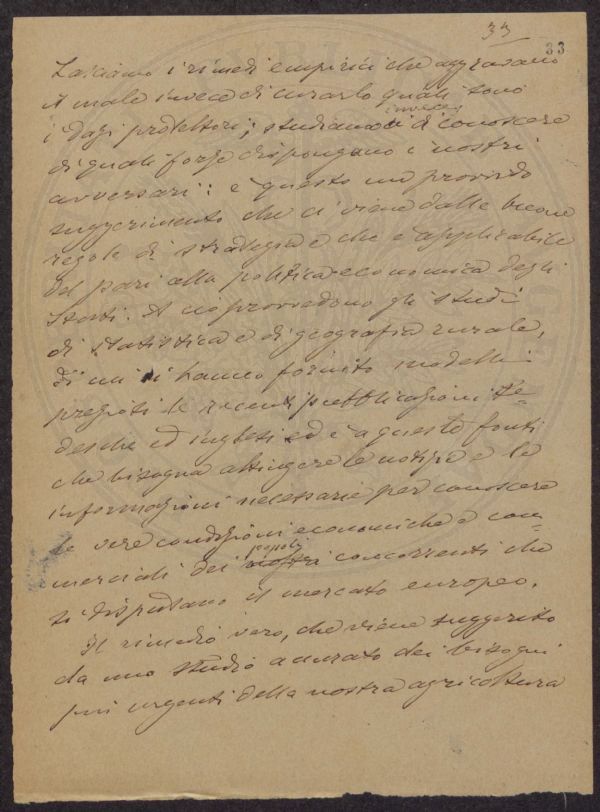 33
33
Lasciamo i rimedi empirici che aggravano
il male invece di curarlo quali sono
invece
i dazi protettori; studiamoci di conoscere
di quali forze dispongano i nostri
avversari: è questo un provvido
suggerimento che ci viene dalle buone
regole di strategia e che è applicabile
del pari alla politica economica degli
Stati. A ciò provvedono gli studi
di statistica e di geografia rurale,
di cui ci hanno fornito modelli
pregioti le recenti pubblicazioni te=
desche ed inglesi ed è a queste fonti
che bisogna attingere le notizie e le
informazioni necessarie per conoscere
le vere condizioni economiche e com=
popoli
merciali dei nostri concorrenti che
si disputano il mercato europeo.
Il rimedio vero, che viene suggerito
da uno studio accurato dei bisogni
più urgenti della nostra agricoltura